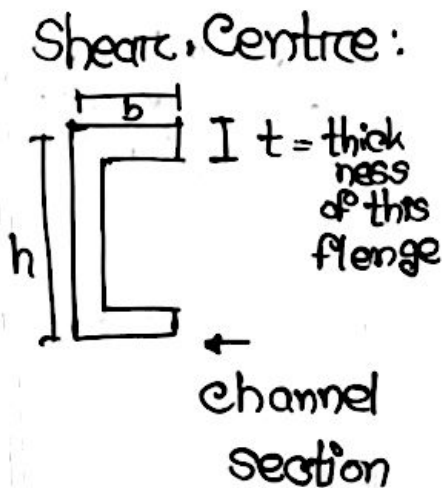 Shearc. Centrce:
b
I t = thick
ness
of this
flenge
h
channel
section